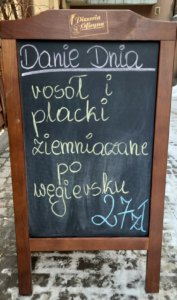 Pizzeria
Oficyna
Danie Dnia
rosół i
placki
ziemniaczane
po
węgiersku
27zł